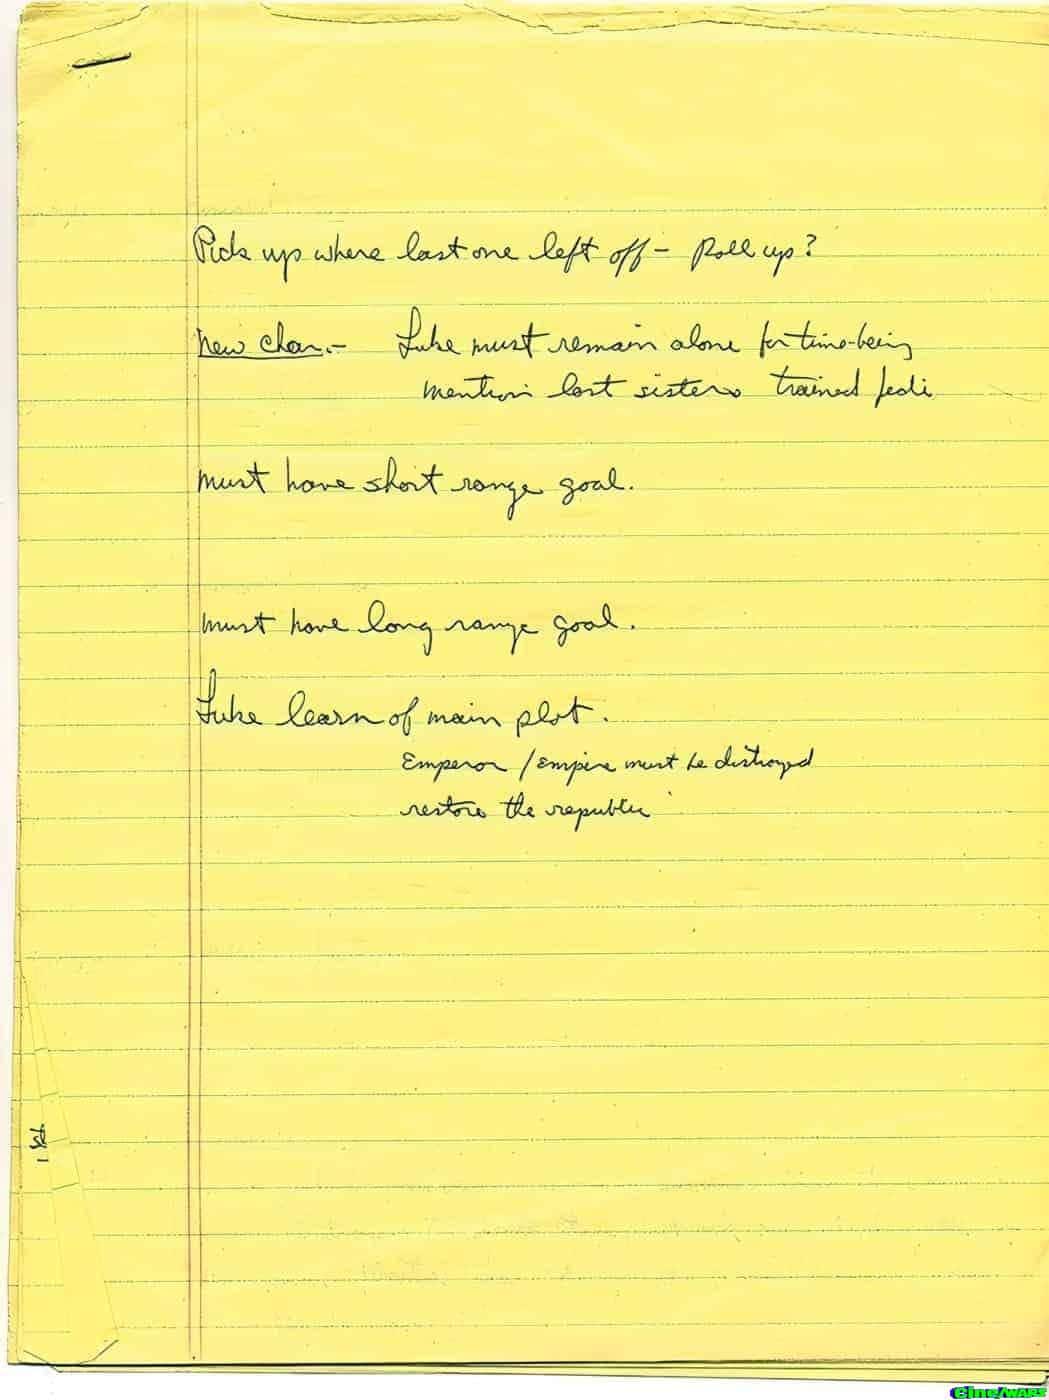 Pick up where last one left off – Roll up?
New char. – Luke must remain alone for time-being
mention lost sister trained Jedi
must have short range goal.
must have long range goal.
Luke learn of main plot.
Emperor / Empire must be distroyed
restore the republic
Cine/WARS